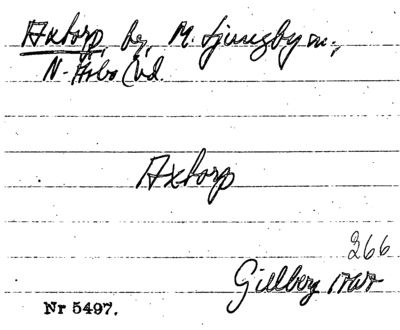 Axtorp, by, M. Ljungby sn.,
N. Åsbo hd.
Axtorp
266
Gillberg 1767
Nr 5497.